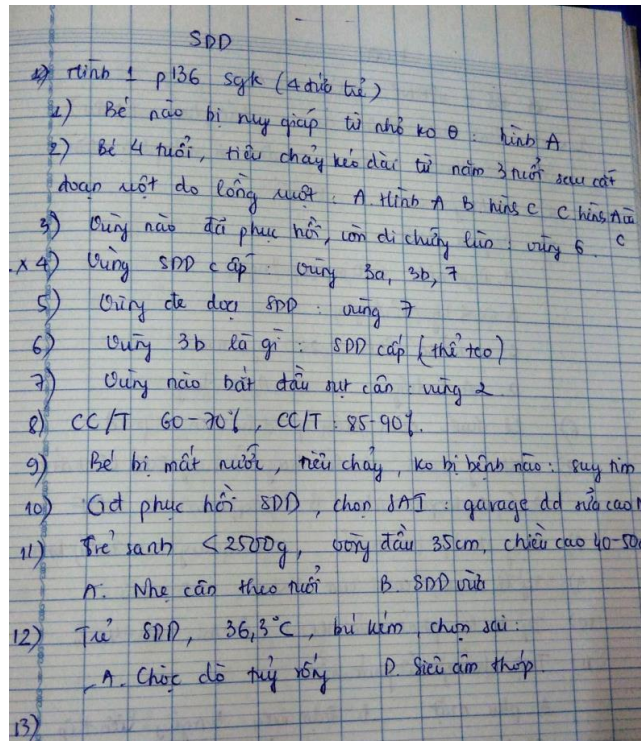 SDD
1) Hình 1 p136 sgk (4 đứa trẻ)
1) Bé nào bị suy giáp từ nhỏ ko θ : hình A
2) Bé 4 tuổi, tiêu chảy kéo dài từ năm 3 tuổi sau cắt
đoạn ruột do lồng ruột : A. Hình A B hình C C hình A và C
3) Vùng nào đã phục hồi, còn di chứng lùn : vùng 6.
x 4) Vùng SDD cấp : vùng 3a, 3b, 7
5) Vùng đe doạ SDD : vùng 7
6) Vùng 3b là gì : SDD cấp (thể teo)
7) Vùng nào bắt đầu sụt cân : vùng 2.
8) CC/T 60-70%, CC/T : 85-90%.
9) Bé bị mất nước, tiêu chảy, ko bị bệnh nào : suy tim
10) Gđ phục hồi SDD, chọn SAI : gavage dd sữa cao
11) Trẻ sanh <2500g, vòng đầu 35cm, chiều cao 40-50
A. Nhẹ cân theo tuổi B. SDD vừa
12) Trẻ SDD, 36,3°C, bú kém, chọn sai :
A. Chọc dò tuỷ sống D. Siêu âm thóp.
13)